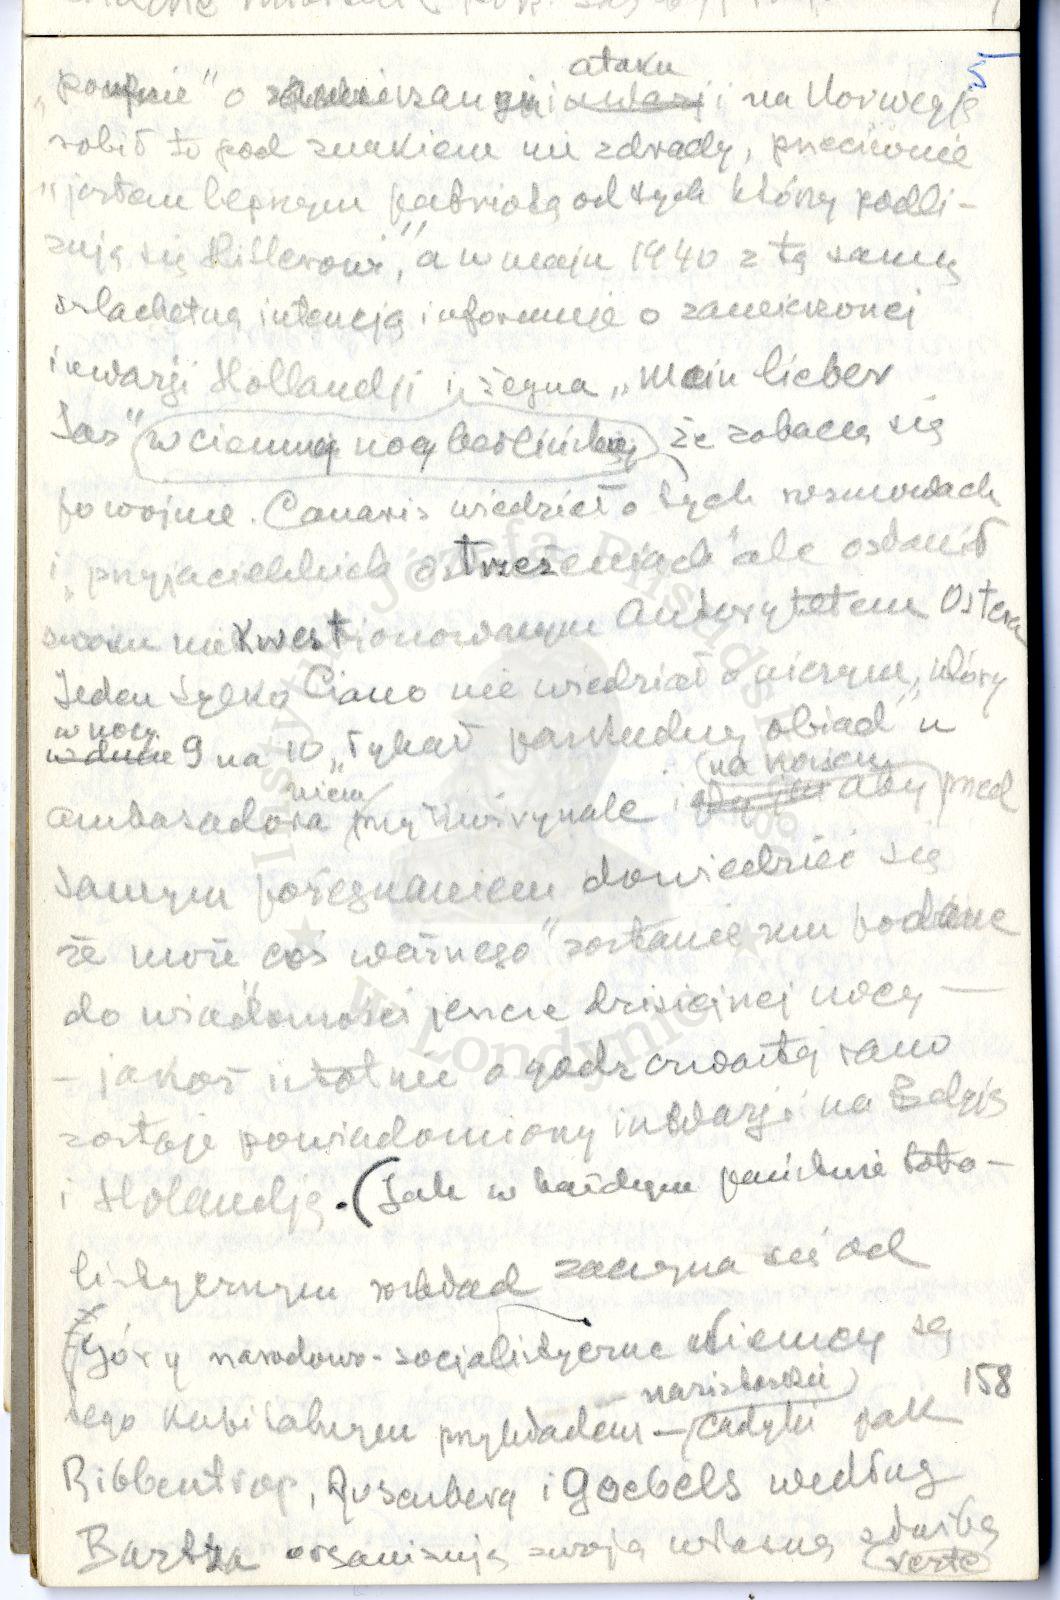 5
ataku
„poufnie" o zamierzonym inwazji na Norwegję
robił to pod znakiem nie zdrady, przeciwnie
"jestem lepszym patriotą od tych którzy podli-
zują się Hitlerowi", a w maju 1940 z tą samą
szlachetną intencją informuje o zamierzonej
inwazji Hollandji i żegna „Mein lieber
Jas" w ciemnej nocy berlińskiej, że zobaczą się
po wojnie. Canaris wiedział o tych rozmowach
i „przyjacielskich ostrzeżeniach" ale osłanił
swoim niekwestionowanym autorytetem Ostera
Jeden tylko Ciano nie wiedział o niczym, który
w nocy
9 na 10 „łykał paskudny obiad" u
na końcu
ambasadora przy Kwirynale i aby przed
samym pożegnaniem dowiedzieć się
że może "coś ważnego" zostanie mu podane
do wiadomości jeszcze dzisiejszej nocy —
– jakoż istotnie o godz czwartej rano
zostaje powiadomiony inwazji na Belgję
i Holandję. (Jak w każdym państwie tota-
listycznym rozkład zaczyna się od
góry narodowo-socjalistyczne Niemcy są
158
tego kapitalnym przykładem – jak
Ribbentrop, Rosenberg i Goebels według
Bartza organizują swoją własną służbę
verte
Instytut Józefa Piłsudskiego
w Londynie